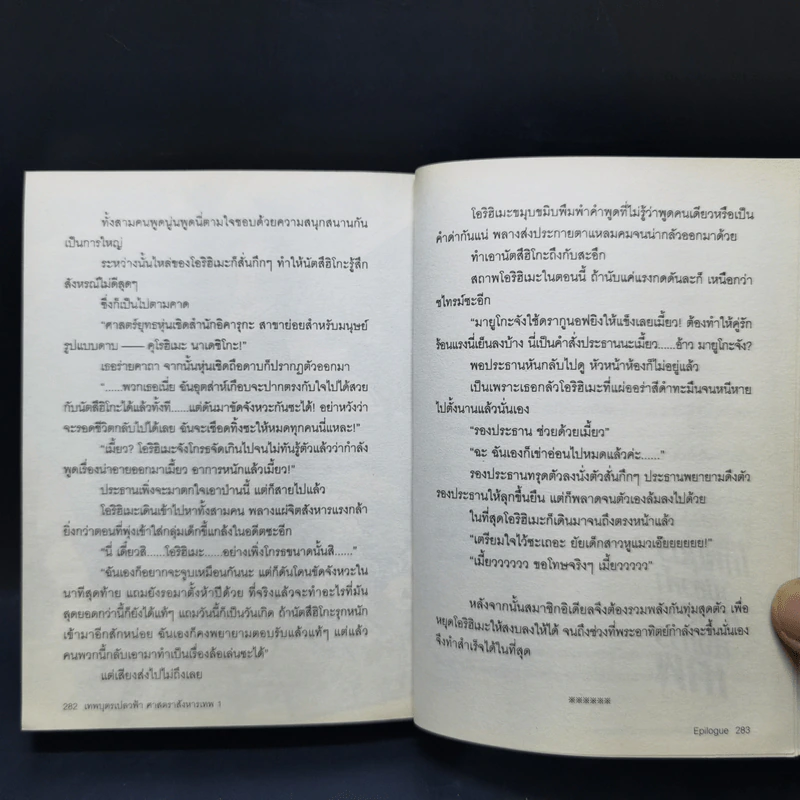 ทั้งสามคนพูดนู่นพูดนี่ตามใจชอบด้วยความสนุกสนานกัน
เป็นการใหญ่
ระหว่างนั้นไหล่ของโอริฮิเมะก็สั่นกึกๆ ทำให้นัตสึฮิโกะรู้สึก
สังหรณ์ไม่ดีสุดๆ
ซึ่งก็เป็นไปตามคาด
“ศาสตร์ยุทธหุ่นเชิดสำนักอิคารุกะ สาขาย่อยสำหรับมนุษย์
รูปแบบดาบ —— คุโรฮิเมะ นาเดชิโกะ!”
เธอร่ายคาถา จากนั้นหุ่นเชิดถือดาบก็ปรากฏตัวออกมา
“......พวกเธอเนี่ย ฉันอุตส่าห์เกือบจะปากตรงกับใจไปได้สวย
กับนัตสึฮิโกะได้แล้วทั้งที......แต่ดันมาขัดจังหวะกันซะได้! อย่าหวังว่า
จะรอดชีวิตกลับไปได้เลย ฉันจะเชือดทิ้งซะให้หมดทุกคนนี่แหละ!”
“เมี้ยว? โอริฮิเมะจังโกรธจัดเกินไปจนไม่ทันรู้ตัวแล้วว่ากำลัง
พูดเรื่องน่าอายออกมาเมี้ยว อาการหนักแล้วเมี้ยว!”
ประธานเพิ่งจะมาตกใจเอาป่านนี้ แต่ก็สายไปแล้ว
โอริฮิเมะเดินเข้าไปหาทั้งสามคน พลางแผ่จิตสังหารแรงกล้า
ยิ่งกว่าตอนที่พุ่งเข้าใส่กลุ่มเด็กขี้แกล้งในอดีตซะอีก
“นี่ เดี๋ยวสิ......โอริฮิเมะ......อย่างเพิ่งโกรธขนาดนั้นสิ......”
“ฉันเองก็อยากจะจูบเหมือนกันนะ แต่ก็ดันโดนขัดจังหวะใน
นาทีสุดท้าย แถมยังรอมาตั้งห้าปีด้วย ที่จริงแล้วจะทำอะไรที่มัน
สุดยอดกว่านี้ก็ยังได้แท้ๆ แถมวันนี้ก็เป็นวันเกิด ถ้านัตสึฮิโกะรุกหนัก
เข้ามาอีกสักหน่อย ฉันเองก็คงพยายามตอบรับแล้วแท้ๆ แต่แล้ว
คนพวกนี้กลับเอามาทำเป็นเรื่องล้อเล่นซะได้”
แต่เสียงส่งไปไม่ถึงเลย
282 เทพบุตรเปลวฟ้า ศาสตราสังหารเทพ 1
โอริฮิเมะขมุบขมิบพึมพำคำพูดที่ไม่รู้ว่าพูดคนเดียวหรือเป็น
คำด่ากันแน่ พลางส่งประกายตาแหลมคมจนน่ากลัวออกมาด้วย
ทำเอานัตสึฮิโกะถึงกับสะอึก
สภาพโอริฮิเมะในตอนนี้ ถ้านับแค่แรงกดดันละก็ เหนือกว่า
ชไทรม์ซะอีก
“มายูโกะจังใช้ดรากูนอฟยิงให้แข็งเลยเมี้ยว! ต้องทำให้คู่รัก
ร้อนแรงนี่เย็นลงบ้าง นี่เป็นคำสั่งประธานนะเมี้ยว......อ้าว มายูโกะจัง?
พอประธานหันกลับไปดู หัวหน้าห้องก็ไม่อยู่แล้ว
เป็นเพราะเธอกลัวโอริฮิเมะที่แผ่ออร่าสีดำทะมึนจนหนีหาย
ไปตั้งนานแล้วนั่นเอง
“รองประธาน ช่วยด้วยเมี้ยว”
“ฉะ ฉันเองก็เข่าอ่อนไปหมดแล้วค่ะ......”
รองประธานทรุดตัวลงนั่งตัวสั่นกึกๆ ประธานพยายามดึงตัว
รองประธานให้ลุกขึ้นยืน แต่ก็พลาดจนตัวเองล้มลงไปด้วย
ในที่สุดโอริฮิเมะก็เดินมาจนถึงตรงหน้าแล้ว
“เตรียมใจไว้ซะเถอะ ยัยเด็กสาวหูแมวเอ๊ยยยยยย!”
“เมี้ยวววววว ขอโทษจริงๆ เมี้ยววววว”
หลังจากนั้นสมาชิกอิเดียลจึงต้องรวมพลังกันทุ่มสุดตัว เพื่อ
หยุดโอริฮิเมะให้สงบลงให้ได้ จนถึงช่วงที่พระอาทิตย์กำลังจะขึ้นนั่นเอง
จึงทำสำเร็จได้ในที่สุด
※※※※※※
Epilogue 283